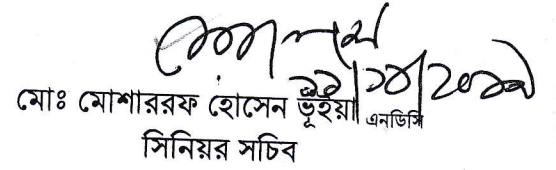 মোঃ মোশাররফ হোসেন ভূঁইয়া এনডিসি
সিনিয়র সচিব